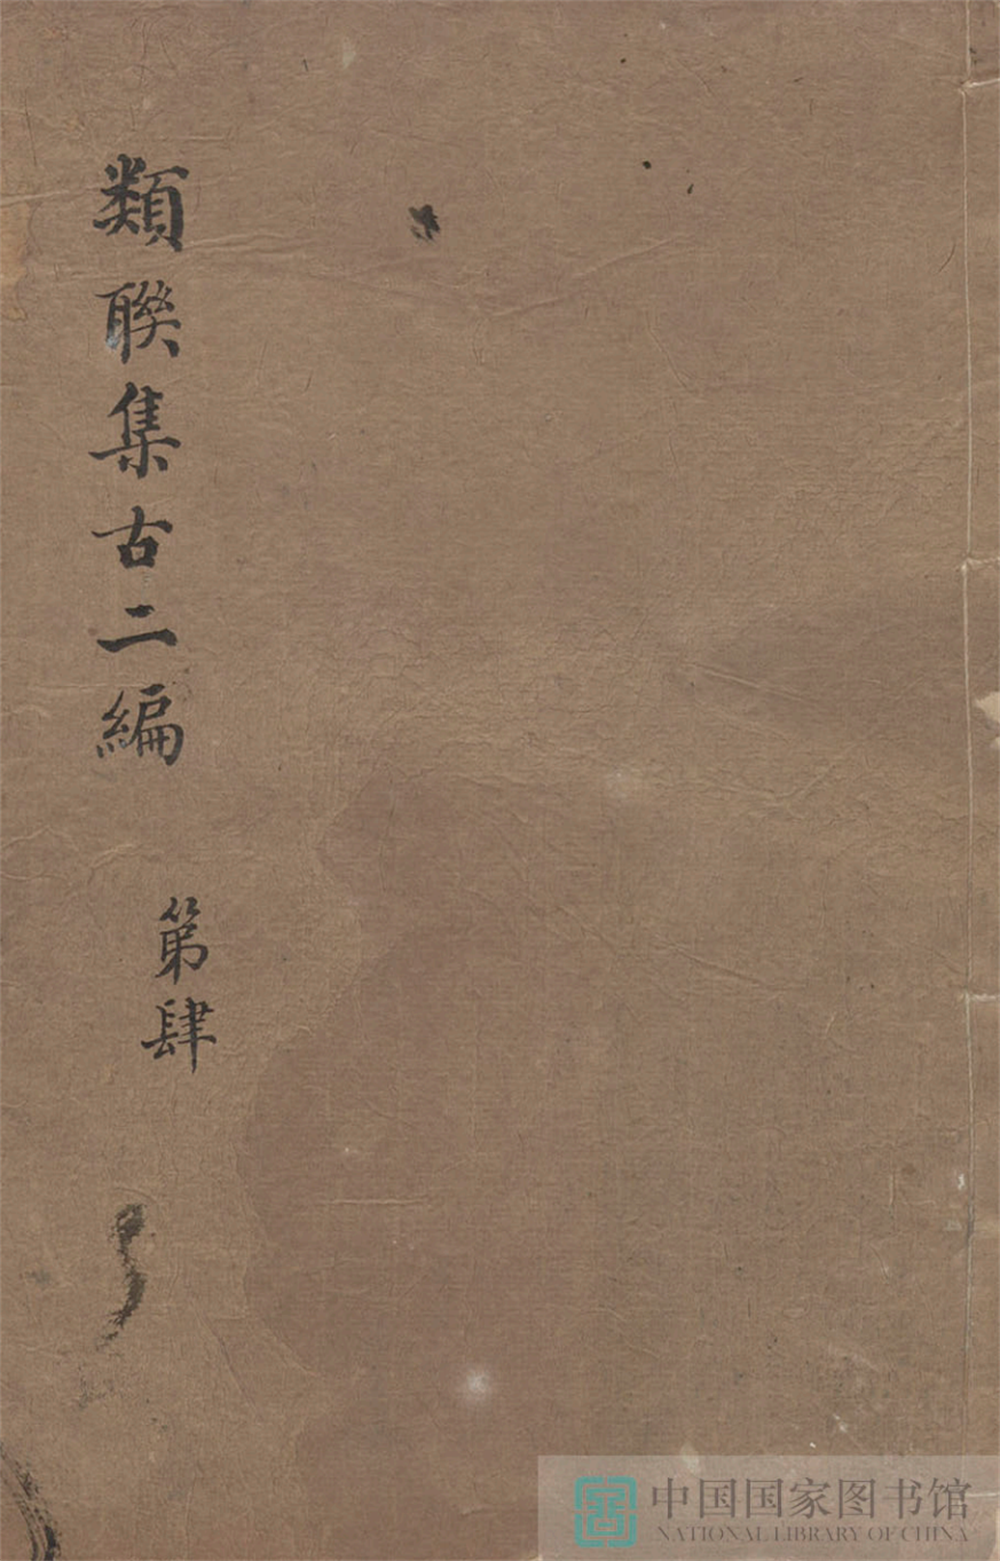 類聮集古二編
第肆
中国国家图书馆
NATIONAL LIBRARY OF CHINA